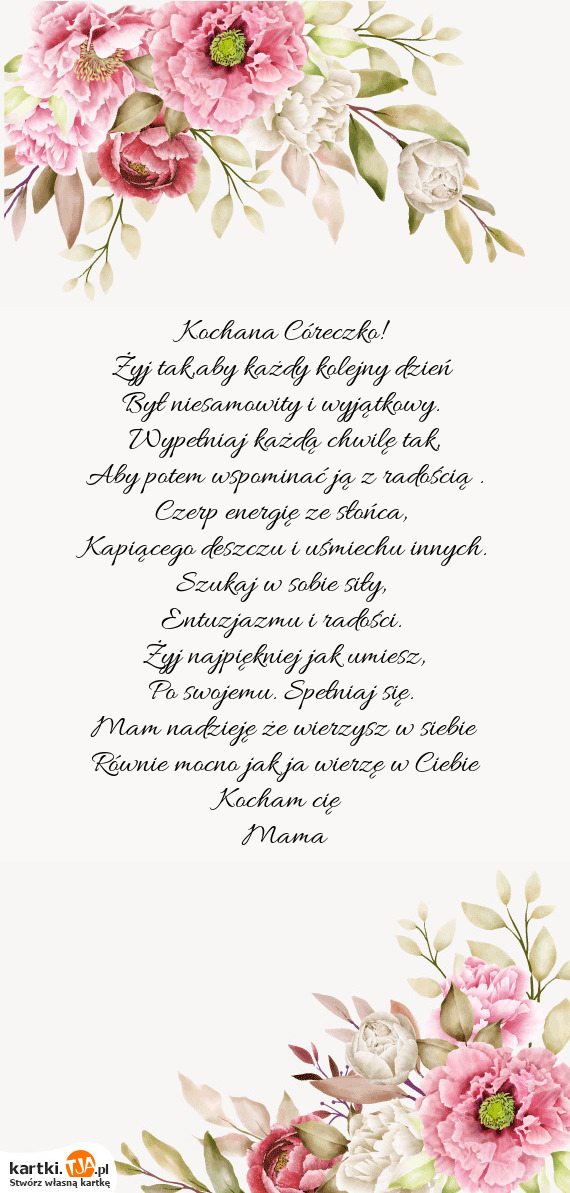 Kochana Córeczko!
Żyj tak,aby każdy kolejny dzień
Był niesamowity i wyjątkowy.
Wypełniaj każdą chwilę tak,
Aby potem wspominać ją z radością .
Czerp energię ze słońca,
Kapiącego deszczu i uśmiechu innych.
Szukaj w sobie siły,
Entuzjazmu i radości.
Żyj najpiękniej jak umiesz,
Po swojemu. Spełniaj się.
Mam nadzieję że wierzysz w siebie
Równie mocno jak ja wierzę w Ciebie
Kocham cię
Mama
kartki.TJA.pl
Stwórz własną kartkę